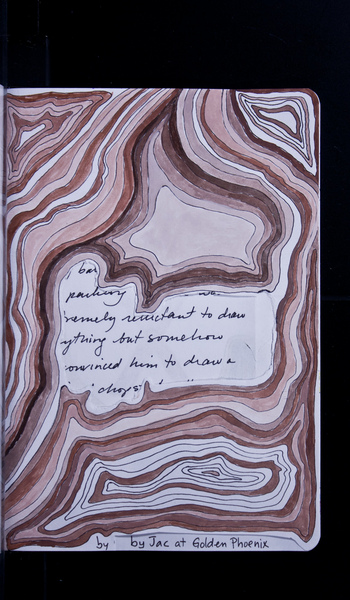 bar
packing
remely reluctant to draw
ything but somehow
onvinced him to draw a
chops
by by Jac at Golden Phoenix